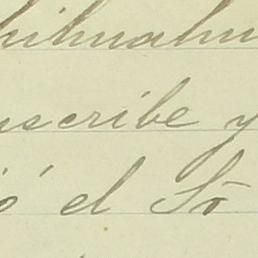 hihuahu
uscribe y
ó el Sr